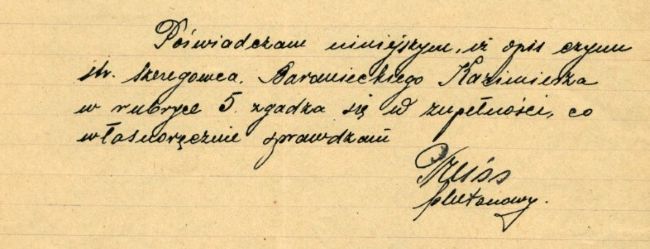 Poświadczam niniejszym, iż opis czynu
str. szeregowca, Baranieckiego Kazimierza
w rubryce 5. zgadza się w zupełności, co
własnoręcznie sprawdzam
plutonowy.